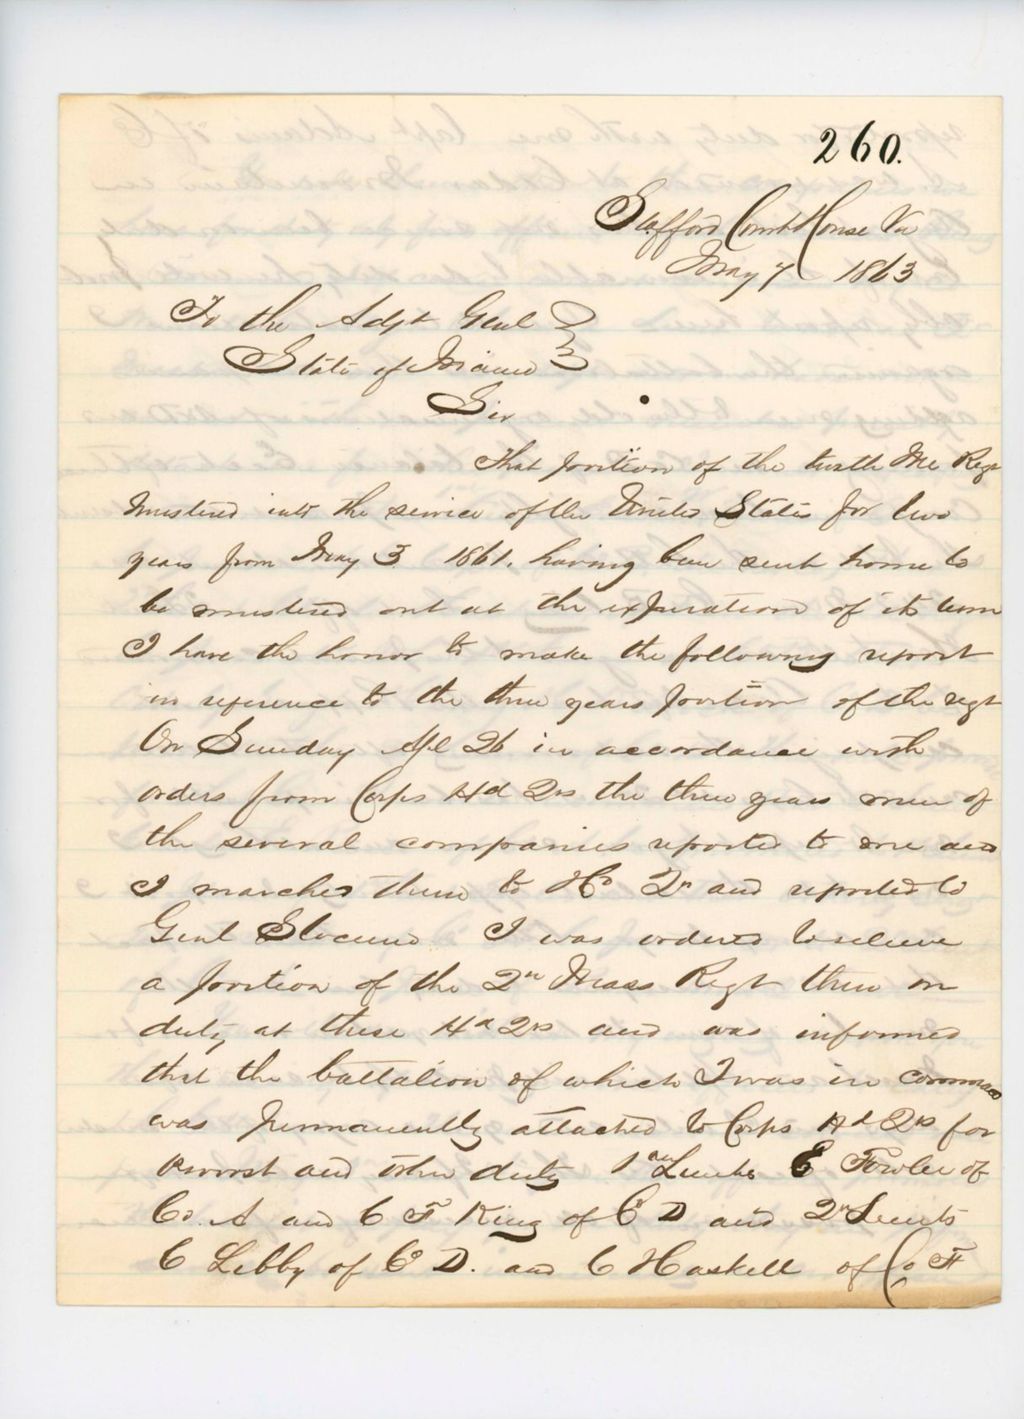 260.
Stafford Court House Va
May 7 1863
To the Adjt Genl
State of Maine
Sir
That portion of the tenth Me Regt
mustered into the service of the United States for two
years from May 3 1861, having been sent home to
be mustered out at the expiration of its term
I have the honor to make the following report
in reference to the three years portion of the regt
On Sunday Apl 26 in accordance with
orders from Corps Hd Qrs the three years men of
the several companies reported to me and
I marched them to Hd Qrs and reported to
Genl Slocum I was ordered to relieve
a portion of the 2nd Mass Regt then on
duty at these Hd Qrs and was informed
that the battalion of which I was in command
was permanently attached to Corps Hd Qrs for
Provost and other duty 1st Lieuts E Fowler of
Co. A and C F King of Co D and 2nd Lieuts
C Libby of Co D. and C Haskell of Co F